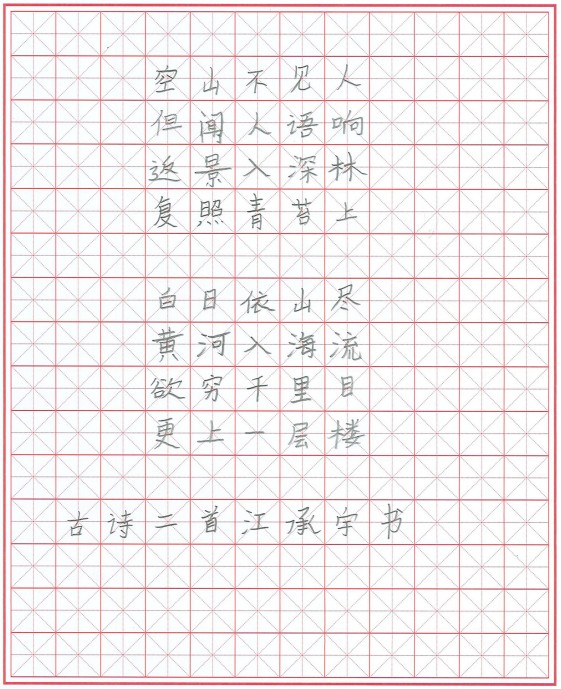 空山不见人
但闻人语响
返景入深林
复照青苔上
白日依山尽
黄河入海流
欲穷千里目
更上一层楼
古诗二首江承宇书